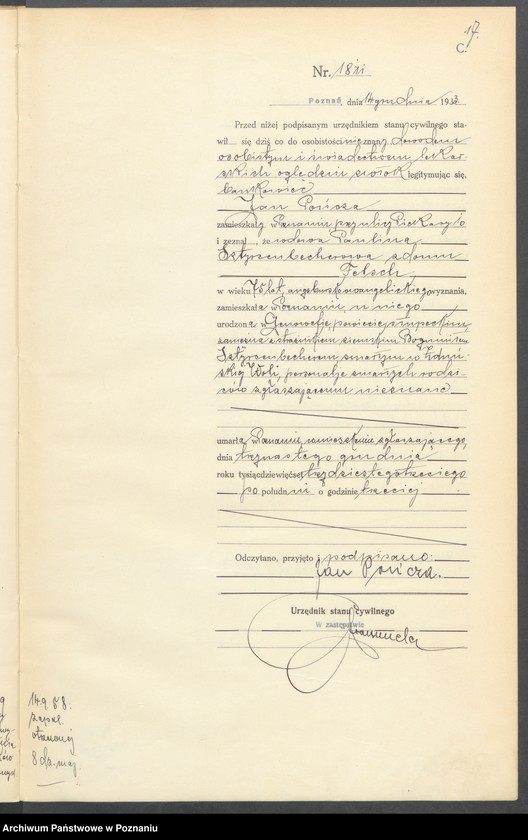 17.
C.
Nr. 18
Poznań, dnia 14 grudnia 1933
Przed niżej podpisanym urzędnikiem stanu cywilnego sta-
wił się dziś co do osobistości nieznany dowodem
osobistym i świadectwem lekar-
skich oględzin zwłok legitymując się,
bankowiec
Jan Pończa
zamieszkały w Poznaniu przy ulicy Piekary
i zeznał, że wdowa Paulina
Sztyrzenbecherowa z domu
Felsch
w wieku lat, ewangelickiego wyznania,
zamieszkała w Poznaniu, u niego
urodzona w Genowefie, powiecie słupeckim
zamężna z Bogumiłem
Sztyrzenbecherem, zmarłym w Zduń-
skiej Woli, personalje zmarłych rodzi-
ców zgłaszającemu nieznane
umarła w Poznaniu, w mieszkaniu zgłaszającego,
dnia trzynastego grudnia
roku tysiącdziewięćset trzydziestego trzeciego
po południu o godzinie trzeciej
Odczytano, przyjęto i podpisano:
Jan Pończa.
Urzędnik stanu cywilnego
W zastępstwie
14.9.58.
Archiwum Państwowe w Poznaniu